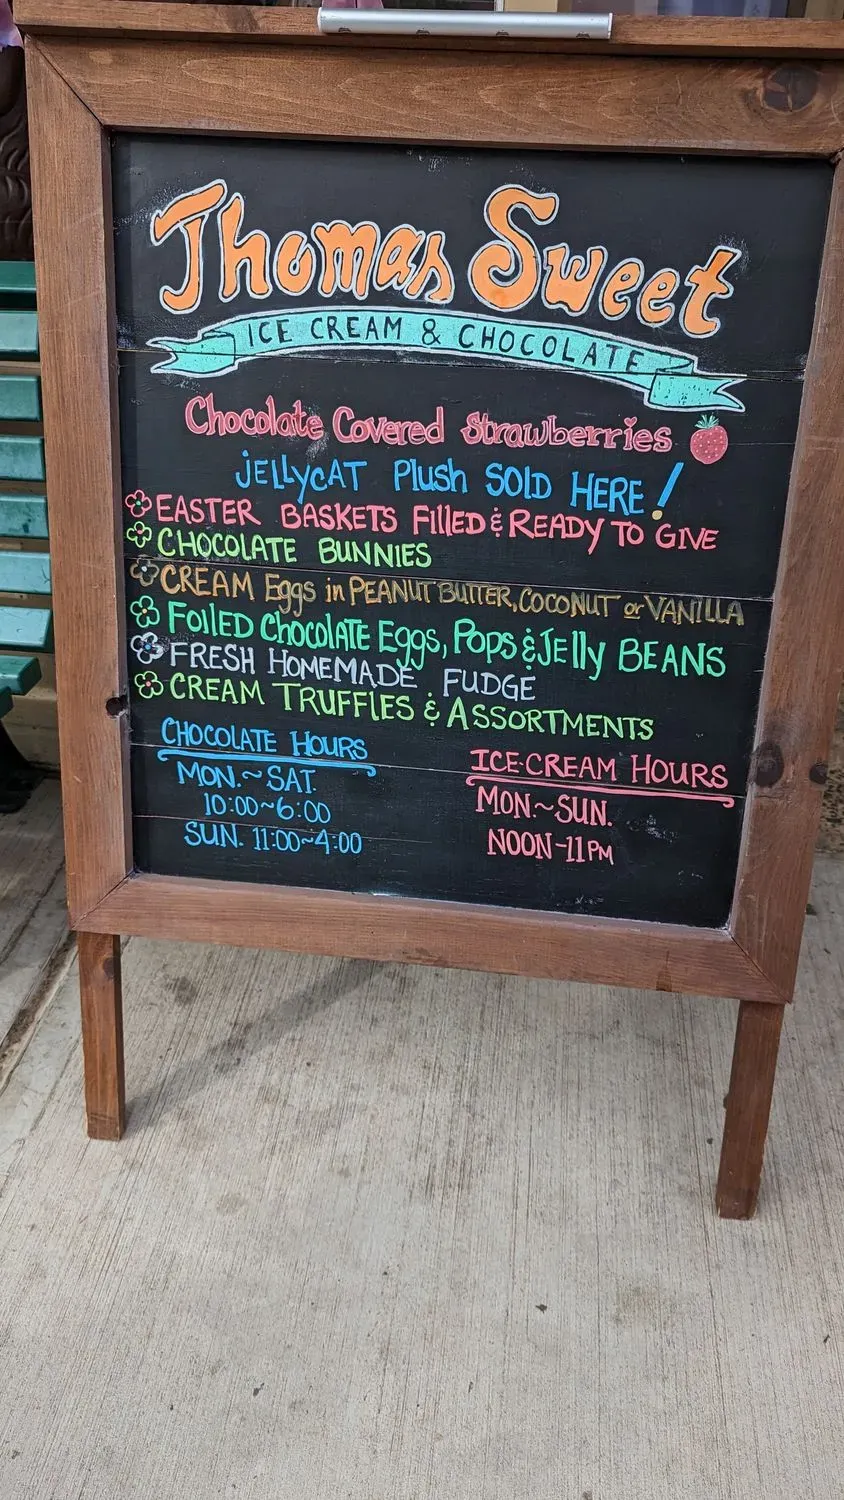 Thomas Sweet
ICE CREAM & CHOCOLATE
Chocolate Covered Strawberries
JELLYCAT Plush SOLD HERE!
EASTER BASKETS FIlled & READY TO GIVE
CHOCOLATE BUNNIES
CREAM Eggs in PEANUT BUTTER, COCONUT or VANILLA
FOILED CHOCOLATE Eggs, POPS & JElly BEANS
FRESH HOMEMADE FUDGE
CREAM TRUFFLES & ASSORTMENTS
CHOCOLATE HOURS
MON.~SAT.
10:00~6:00
SUN. 11:00~4:00
ICE-CREAM HOURS
MON.~SUN.
NOON-11PM